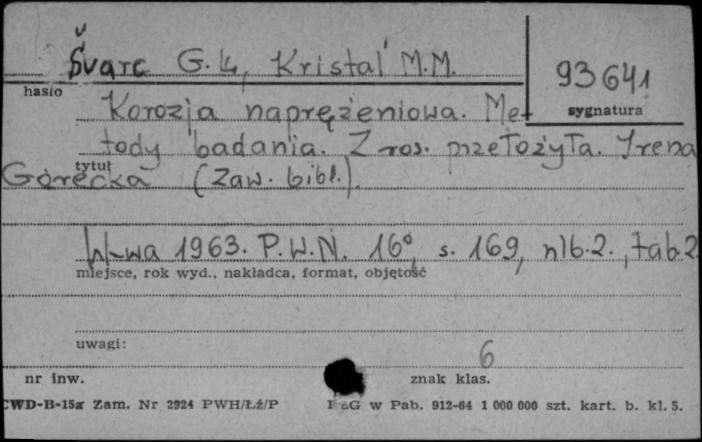 Švarc G.L, Kristal' M.M.
93641
hasło
sygnatura
Korozja naprężeniowa. Me-
tody badania. Z ros. przełożyła. Irena
tytuł
Górecka (Zaw. bibl.).
W-wa 1963. P.W.N. 16°, s. 169, nlb.2., tab.2
miejsce, rok wyd., nakładca, format, objętość
uwagi:
6
nr inw.
znak klas.
CWD-B-15a Zam. Nr 2924 PWH/Łż/P
w Pab. 912-64 1 000 000 szt. kart. b. kl. 5.